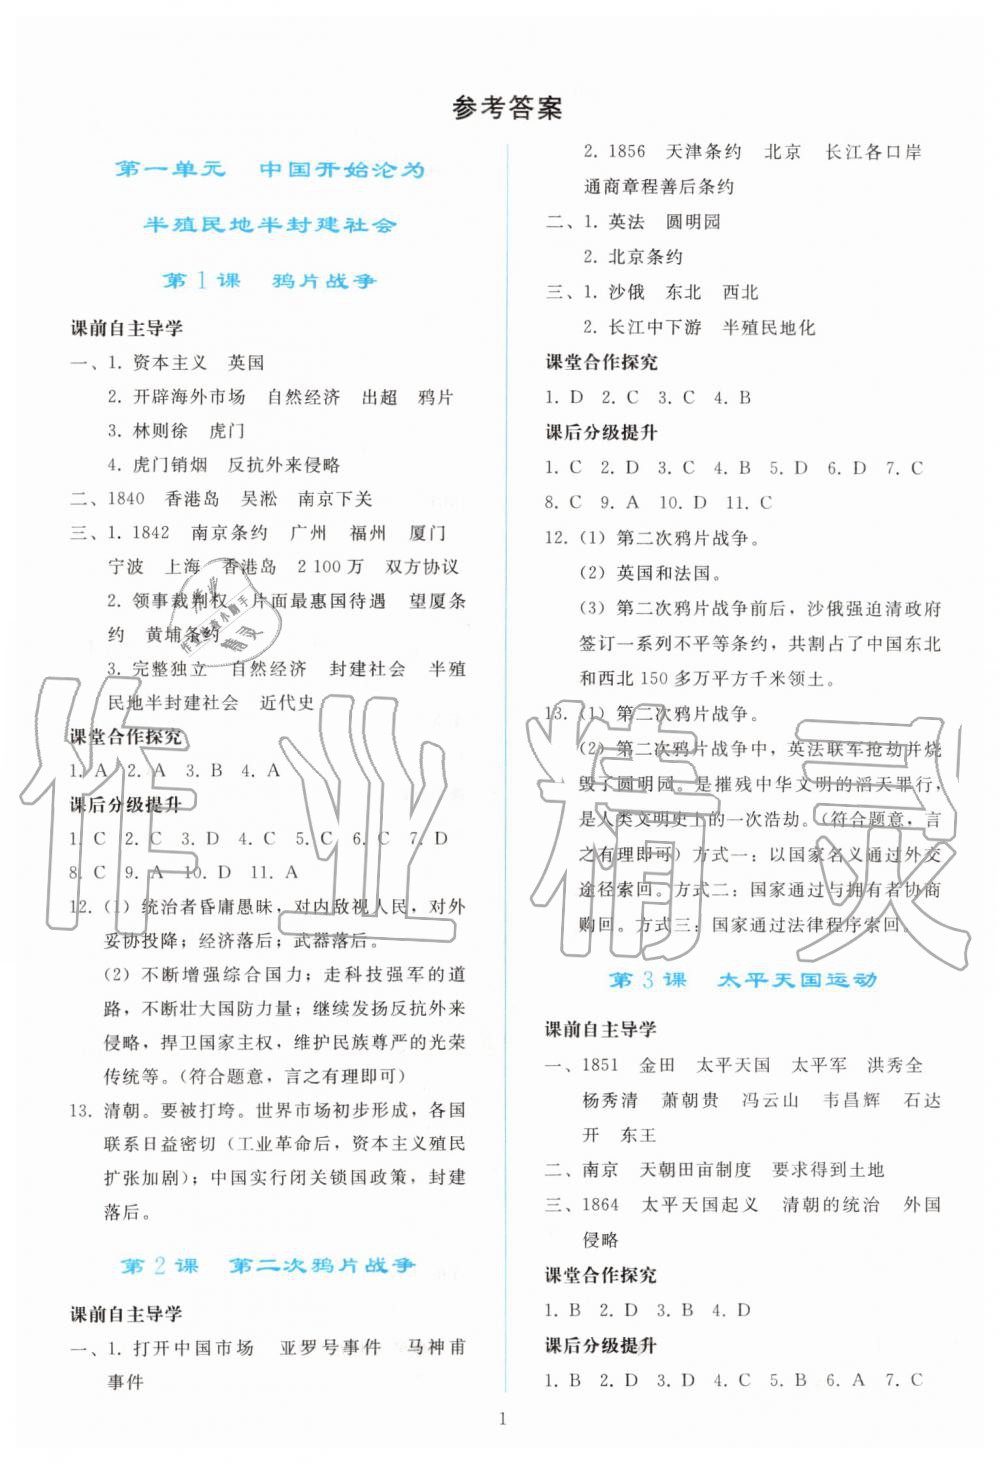 参考答案
第一单元　中国开始沦为
半殖民地半封建社会
第1课　鸦片战争
课前自主导学
一、1. 资本主义　英国
2. 开辟海外市场　自然经济　出超　鸦片
3. 林则徐　虎门
4. 虎门销烟　反抗外来侵略
二、1840　香港岛　吴淞　南京下关
三、1. 1842　南京条约　广州　福州　厦门
宁波　上海　香港岛　2 100 万　双方协议
2. 领事裁判权　片面最惠国待遇　望厦条
约　黄埔条约
3. 完整独立　自然经济　封建社会　半殖
民地半封建社会　近代史
课堂合作探究
1. A　2. A　3. B　4. A
课后分级提升
1. C　2. C　3. D　4. C　5. C　6. C　7. D
8. C　9. A　10. D　11. A
12. (1) 统治者昏庸愚昧，对内敌视人民，对外
妥协投降；经济落后；武器落后。
(2) 不断增强综合国力；走科技强军的道
路，不断壮大国防力量；继续发扬反抗外来
侵略，捍卫国家主权，维护民族尊严的光荣
传统等。(符合题意，言之有理即可)
13. 清朝。要被打垮。世界市场初步形成，各国
联系日益密切（工业革命后，资本主义殖民
扩张加剧）；中国实行闭关锁国政策，封建
落后。
第2课　第二次鸦片战争
课前自主导学
一、1. 打开中国市场　亚罗号事件　马神甫
事件
2. 1856　天津条约　北京　长江各口岸
通商章程善后条约
二、1. 英法　圆明园
2. 北京条约
三、1. 沙俄　东北　西北
2. 长江中下游　半殖民地化
课堂合作探究
1. D　2. C　3. C　4. B
课后分级提升
1. C　2. D　3. C　4. B　5. D　6. D　7. C
8. C　9. A　10. D　11. C
12. (1) 第二次鸦片战争。
(2) 英国和法国。
(3) 第二次鸦片战争前后，沙俄强迫清政府
签订一系列不平等条约，共割占了中国东北
和西北 150 多万平方千米领土。
13. (1) 第二次鸦片战争。
(2) 第二次鸦片战争中，英法联军抢劫并烧
毁了圆明园。是摧残中华文明的滔天罪行，
是人类文明史上的一次浩劫。(符合题意，言
之有理即可) 方式一：以国家名义通过外交
途径索回。方式二：国家通过与拥有者协商
购回。方式三：国家通过法律程序索回。
第3课　太平天国运动
课前自主导学
一、1851　金田　太平天国　太平军　洪秀全
杨秀清　萧朝贵　冯云山　韦昌辉　石达
开　东王
二、南京　天朝田亩制度　要求得到土地
三、1864　太平天国起义　清朝的统治　外国
侵略
课堂合作探究
1. B　2. D　3. B　4. D
课后分级提升
1. B　2. D　3. D　4. C　5. B　6. A　7. C
1
作业精灵